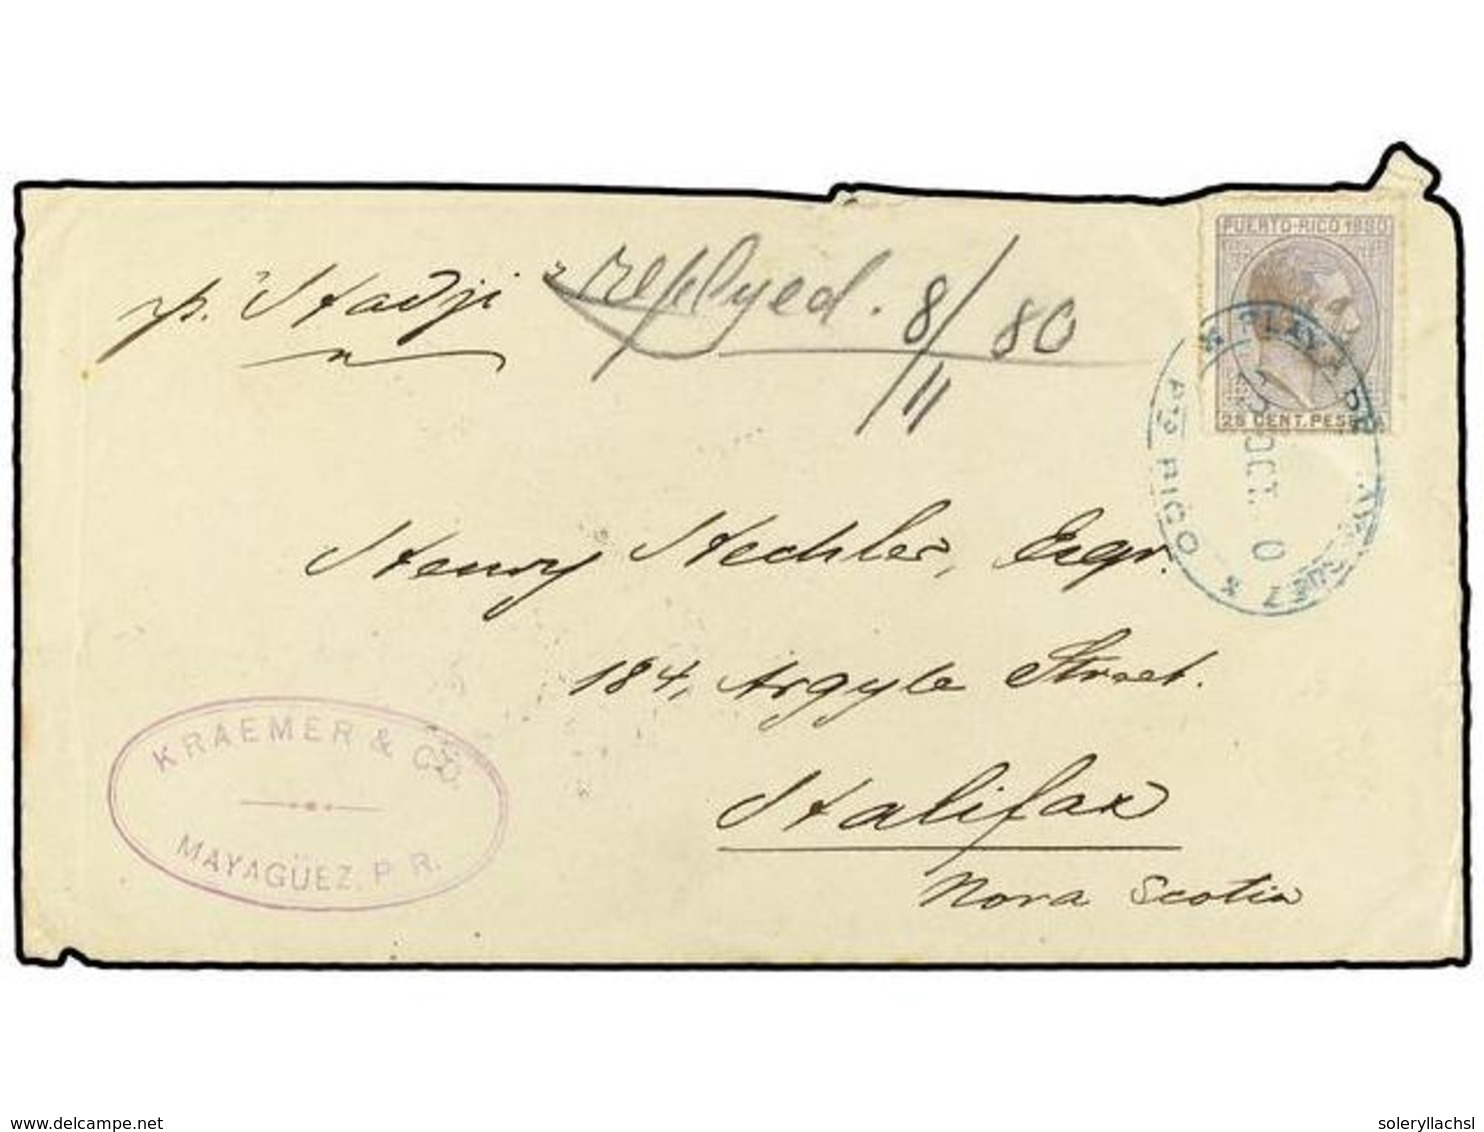 PUERTO-RICO 1880
p. "Hadji"
replyed. 8/11 80
25 CENT. PESETA
PLAYA DE MAYAGUEZ
Pto RICO
OCT. 80
Henry Hechler, Esqr.
184, Argyle Street.
Halifax
Nova Scotia
KRAEMER & Co.
MAYAGÜEZ. P. R.
www.delcampe.net
soleryllachsl